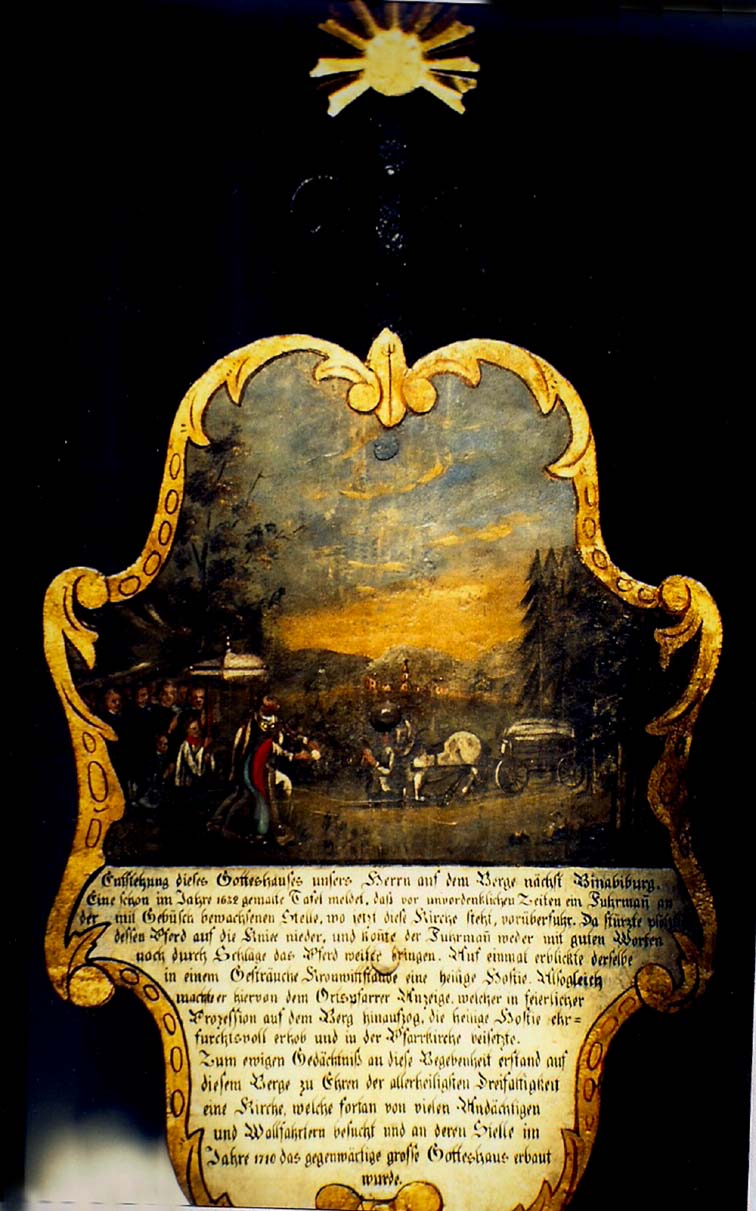 Entstehung dieses Gotteshauses unsers Herrn auf dem Berge nächst Binabiburg.
Eine schon im Jahre 1632 gemalte Tafel meldet, daß vor unvordenklichen Zeiten ein Fuhrmañ an
der mit Gebüsch bewachsenen Stelle, wo jetzt diese Kirche steht, vorüberfuhr. Da stürzte plötzlich
dessen Pferd auf die Kniee nieder, und koñte der Fuhrmañ weder mit guten Worten
noch durch Schläge das Pferd weiter bringen. Auf einmal erblickte derselbe
in einem Gesträuche Kronwittstaude eine heilige Hostie. Alsogleich
machte er hiervon dem Ortspfarrer Anzeige, welcher in feierlicher
Prozession auf dem Berg hinaufzog, die heilige Hostie ehr=
furchtsvoll erhob und in der Pfarrkirche beisetzte.
Zum ewigen Gedächtniß an diese Begebenheit erstand auf
diesem Berge zu Ehren der allerheiligsten Dreifaltigkeit
eine Kirche, welche fortan von vielen Andächtigen
und Wallfahrtern besucht und an deren Stelle im
Jahre 1710 das gegenwärtige große Gotteshaus erbaut
wurde.